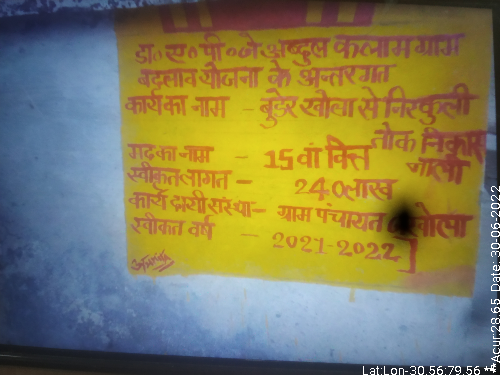 डा० ए० पी० जे अब्दुल कलाम ग्राम
बदलाव योजना के अन्तरगत
कार्य का नाम - बुडेर खोला से निरकुली
तोक निकास
नाली
मद का नाम - 15 वां वित्त
स्वीकृत लागत - 2.40 लाख
कार्य दायी संस्था - ग्राम पंचायत
स्वीकत वर्ष - 2021-2022
Lat:Lon-30.56:79.56 **
**Acur:28.65, Date: 30-06-2022